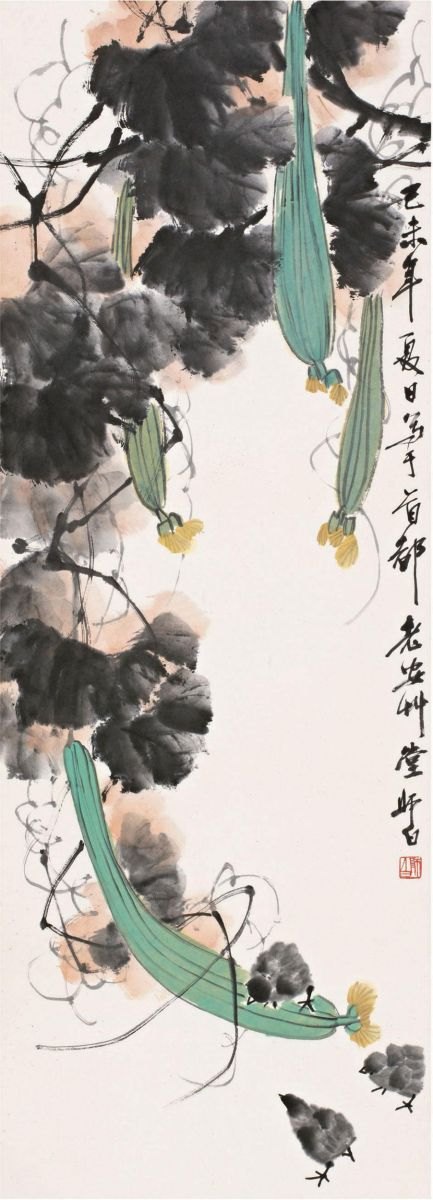 己未年夏日写于首都老安艸堂师白